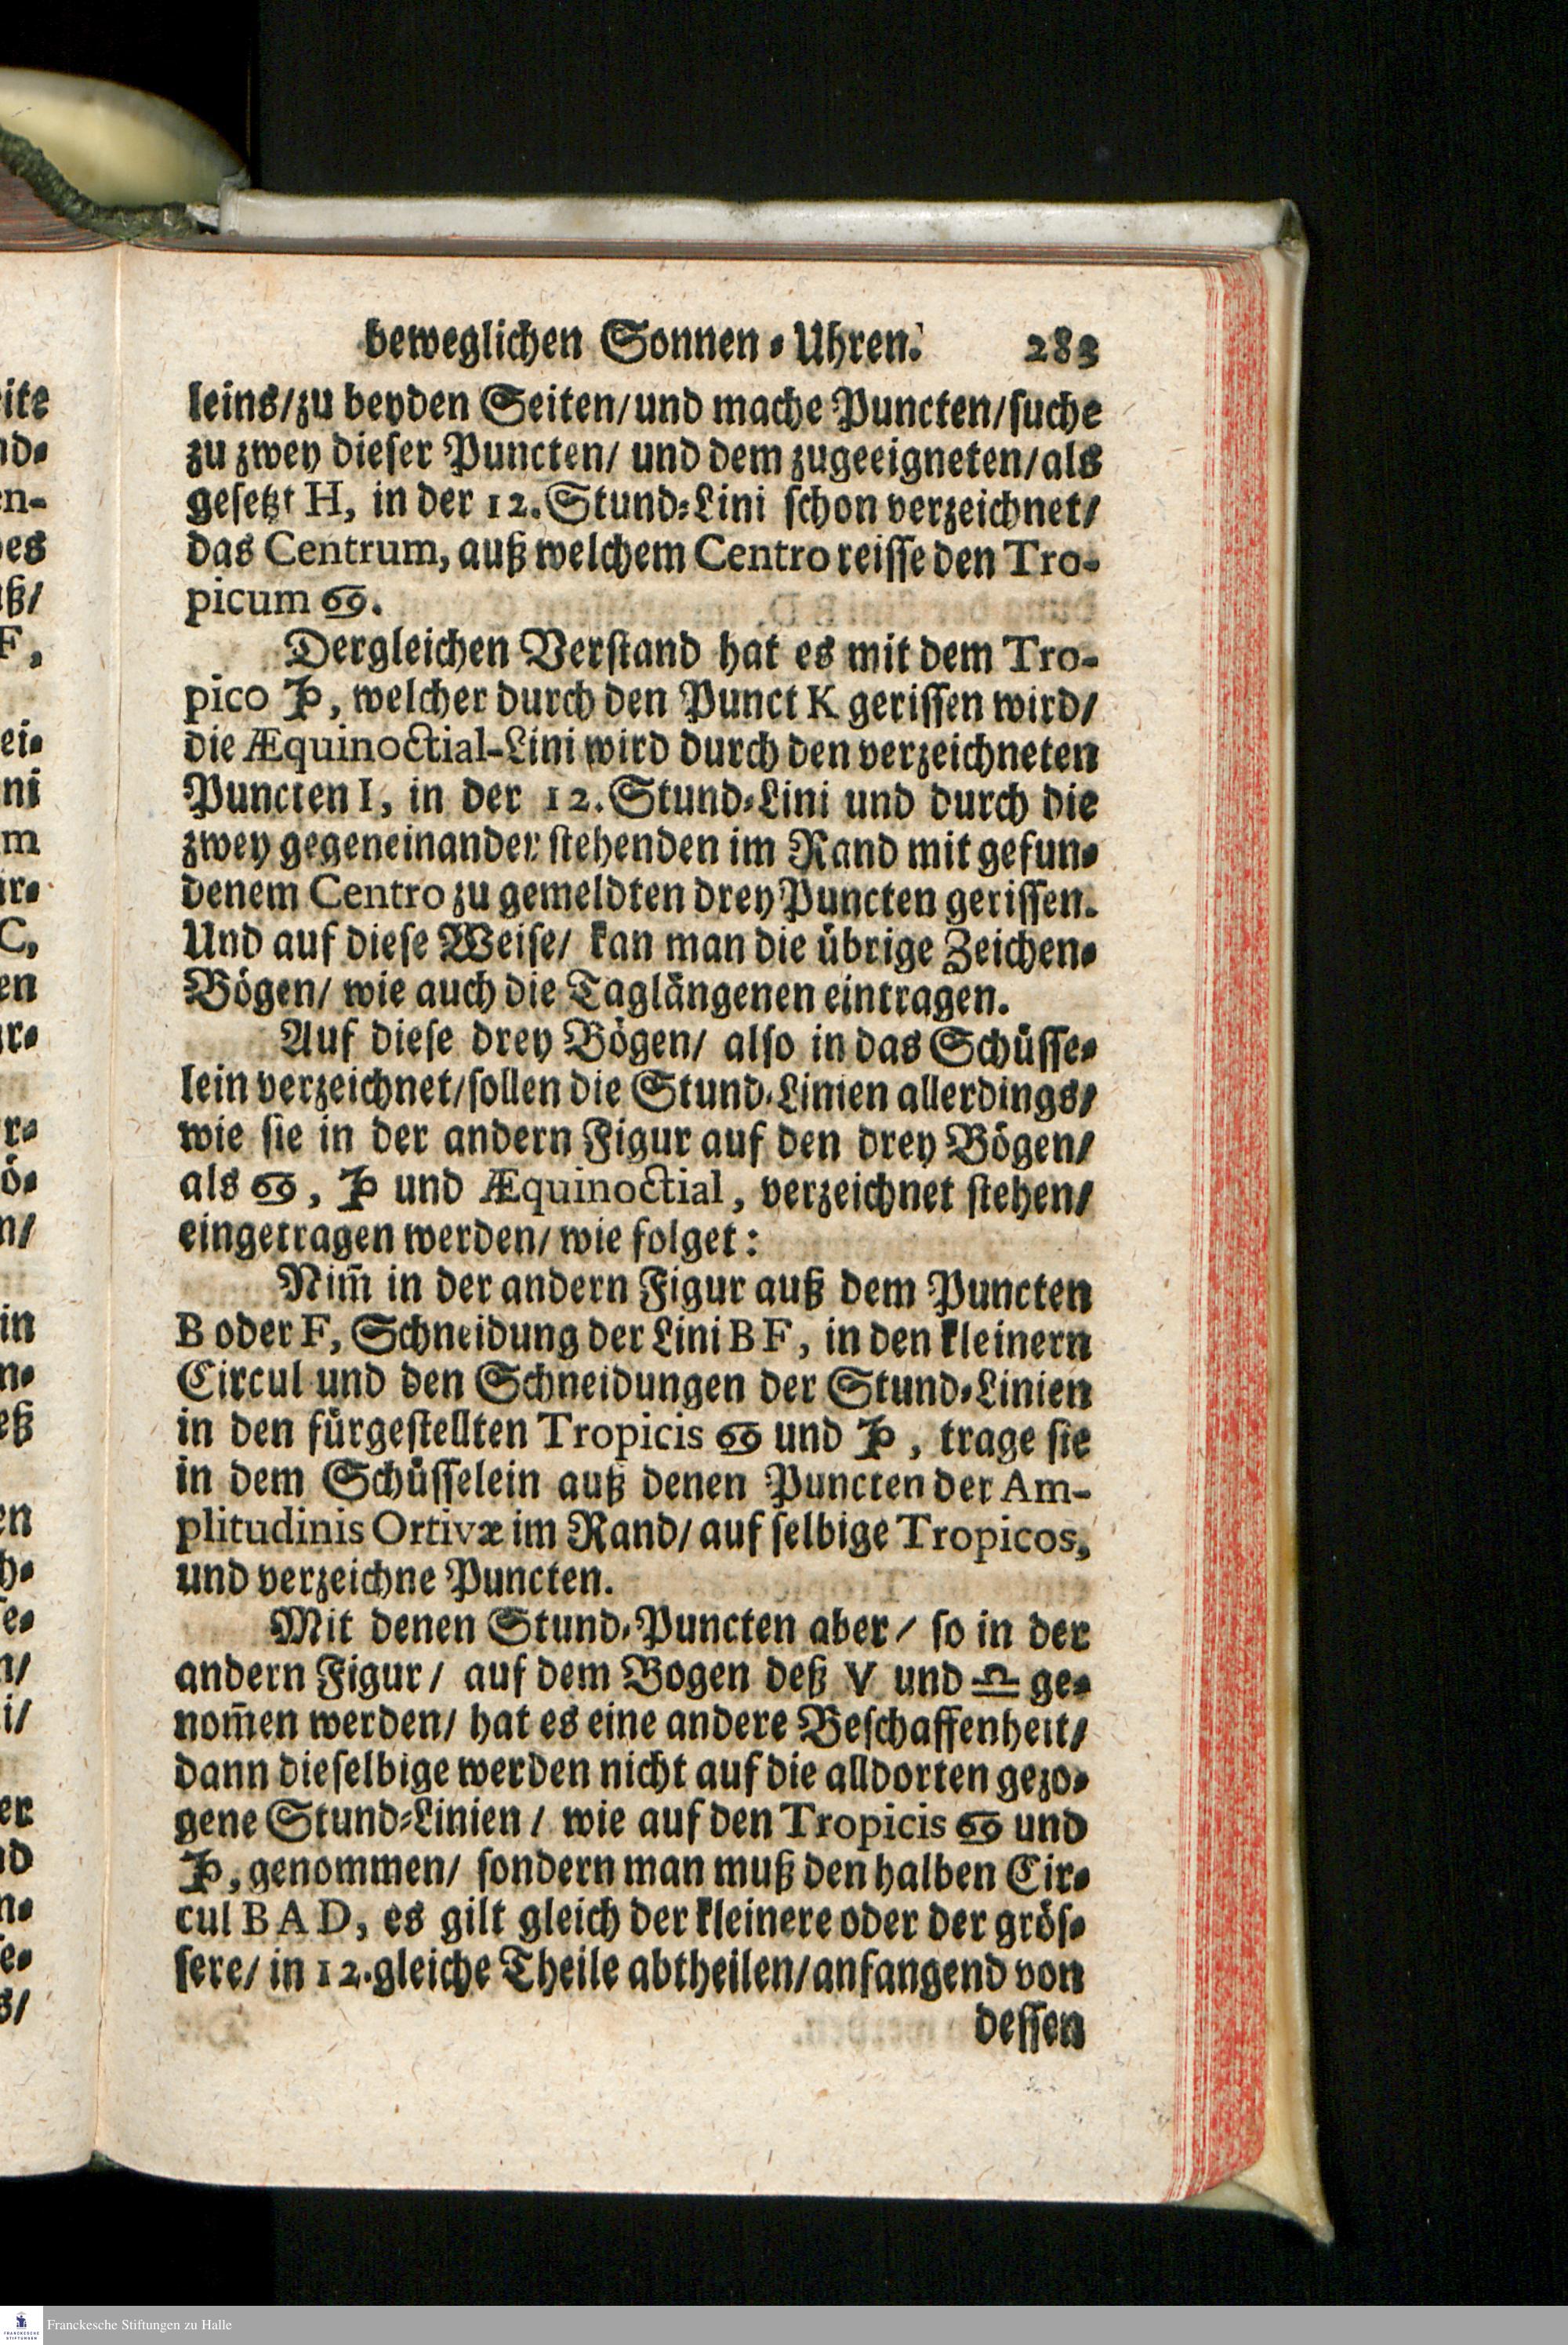 beweglichen Sonnen-Uhren. 283
leins/zu beyden Seiten/und mache Puncten/suche
zu zwey dieser Puncten/ und dem zugeeigneten/als
gesetzt H, in der 12. Stund-Lini schon verzeichnet/
das Centrum, auß welchem Centro reisse den Tro-
picum ♋.
Dergleichen Verstand hat es mit dem Tro-
pico ♑, welcher durch den Punct K gerissen wird/
die Æquinoctial-Lini wird durch den verzeichneten
Puncten I, in der 12. Stund-Lini und durch die
zwey gegeneinander stehenden im Rand mit gefun-
denem Centro zu gemeldten drey Puncten gerissen.
Und auf diese Weise/ kan man die übrige Zeichen-
Bögen/ wie auch die Taglängenen eintragen.
Auf diese drey Bögen/ also in das Schüsse-
lein verzeichnet/sollen die Stund-Linien allerdings/
wie sie in der andern Figur auf den drey Bögen/
als ♋, ♑ und Æquinoctial, verzeichnet stehen/
eingetragen werden/ wie folget:
Nim̃ in der andern Figur auß dem Puncten
B oder F, Schneidung der Lini B F, in den kleinern
Circul und den Schneidungen der Stund-Linien
in den fürgestellten Tropicis ♋ und ♑, trage sie
in dem Schüsselein auß denen Puncten der Am-
plitudinis Ortivæ im Rand/ auf selbige Tropicos,
und verzeichne Puncten.
Mit denen Stund-Puncten aber/ so in der
andern Figur/ auf dem Bogen deß V und ♎ ge-
nom̃en werden/ hat es eine andere Beschaffenheit/
dann dieselbige werden nicht auf die alldorten gezo-
gene Stund-Linien/ wie auf den Tropicis ♋ und
♑, genommen/ sondern man muß den halben Cir-
cul B A D, es gilt gleich der kleinere oder der grös-
sere/ in 12. gleiche Theile abtheilen/anfangend von
dessen
Franckesche Stiftungen zu Halle